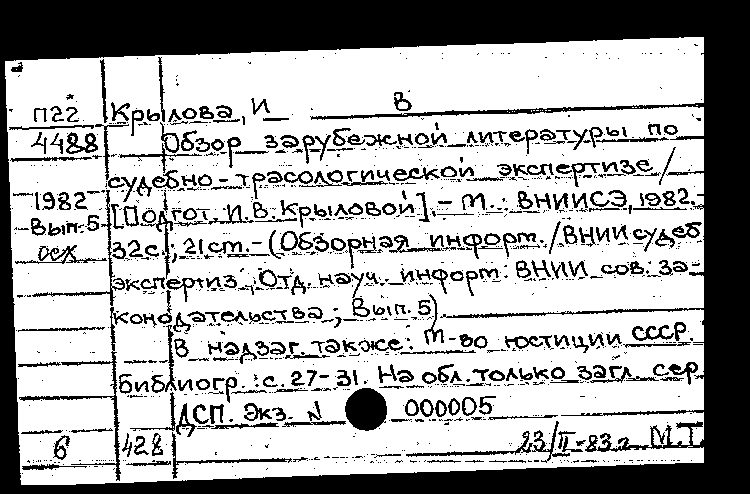 П22 Крылова, И В
4488 Обзор зарубежной литературы по
судебно-трасологической экспертизе/
1982 [Подгот. И.В. Крыловой].- М.: ВНИИСЭ, 1982.-
Вып.5 32с.; 21см.- (Обзорная информ./ВНИИ судеб
осх экспертиз, Отд. науч. информ. ВНИИ сов. за-
конодательства; Вып. 5).
В надзаг. также: М-во юстиции СССР.
Библиогр.: с. 27-31. На обл. только загл. сер.
ДСП. Экз. N 000005
6 428 23/II-83г М.Т.